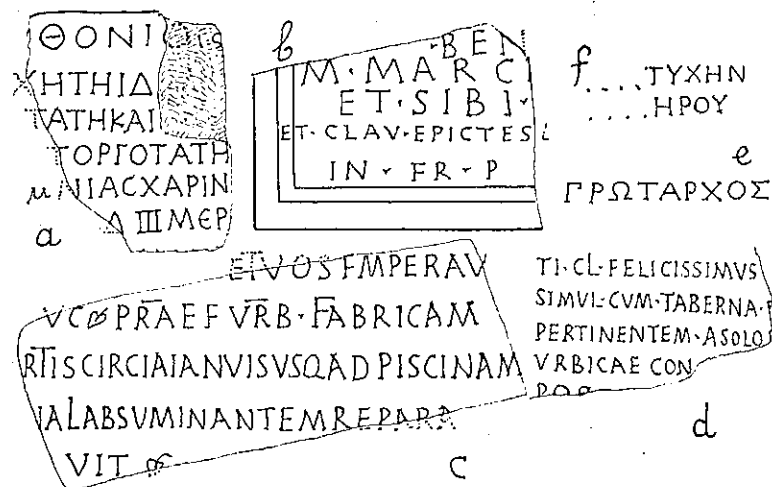 ΘΟΝΙ
ΧΗΤΗΙΔ
ΤΑΤΗΚΑΙ
ΤΟΡΓΟΤΑΤΗ
μΝΙΑϹΧΑΡΙΝ
Δ ΙΙΙ ΜΕΡ
a
b
·BEN
M·MARCI
ET·SIBI·
ET·CLAV·EPICTESI
IN·FR·P
f
....ΤΥΧΗΝ
....ΗΡΟΥ
e
ΓΡΩΤΑΡΧΟΣ
ETVOSFMPERAV
VC PRAEF VRB·FABRICAM
RTISCIRCIAIANVISVSQADPISCINAM
IALABSVMINANTEMREPARA
VIT
c
TI·CL·FELICISSIMVS
SIMVL·CVM·TABERNA·
PERTINENTEM·ASOLO
VRBICAE CON
d